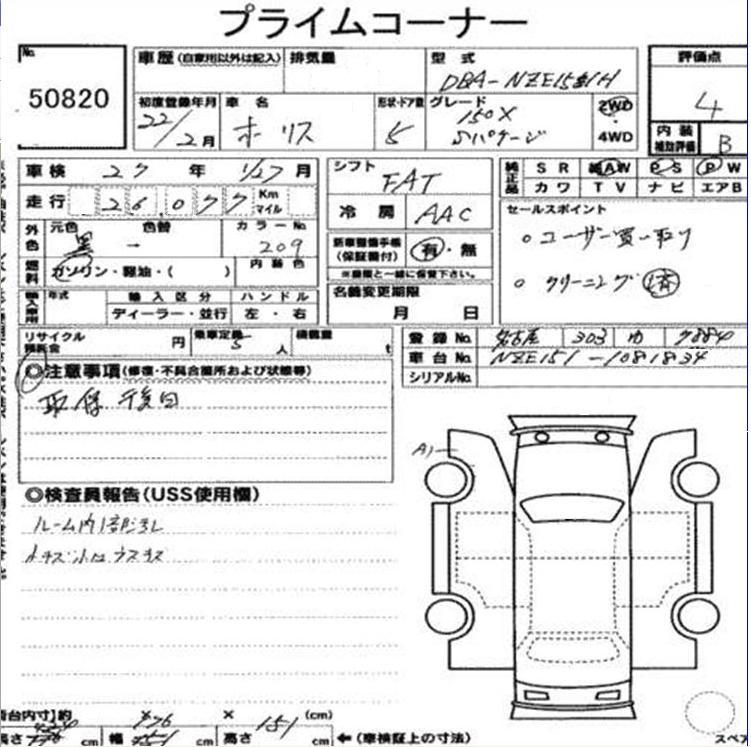 プライムコーナー
No. 50820
車歴(自家用以外は記入) 排気量 型式 DBA-NZE151H
評価点 4
初度登録年月 22/2月 車名 ホリス 形状・ドア数 5 グレード 150X Sパケージ 2WD・4WD
内装補助評価 B
車検 27年 1/27月
走行 26,077 Km マイル
外色 元色 黒 色替 → カラーNo. 209
燃料 ガソリン・軽油・( ) 内装色
輸入車用 年式 輸入区分 ハンドル
ディーラー・並行 左・右
シフト FAT
冷房 AAC
新車整備手帳(保証書付) 有・無
※書類と一緒に保管下さい。
名義変更期限
月 日
純正品 SR AW PS PW
カワ TV ナビ エアB
セールスポイント
○ユーザー買い取り
○クリーニング済
リサイクル預託金 円 乗車定員 5人 積載量 t
登録No. 名古屋 303 ゆ 7884
車台No. NZE151-1081834
シリアルNo.
◎注意事項(修復・不具合箇所および状態等)
取保 後日
◎検査員報告(USS使用欄)
A1
長さ cm 幅 cm 高さ 151 (cm) cm ←(車検証上の寸法)
スペア